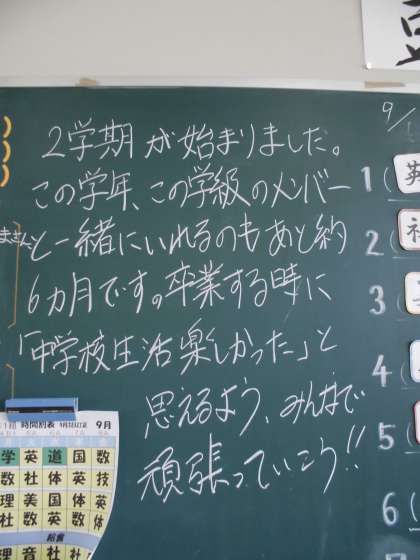 2学期が始まりました。
この学年、この学級のメンバー
と一緒にいれるのもあと約
6カ月です。卒業する時に
「中学校生活楽しかった」と
思えるよう、みんなで
頑張っていこう!!
9/1
1(英
2(社
3
4(
5(
6(
まさん
時間割表
9月
学英道国数
数社体英技
理美国体英
社数英数体
給食
理音社社